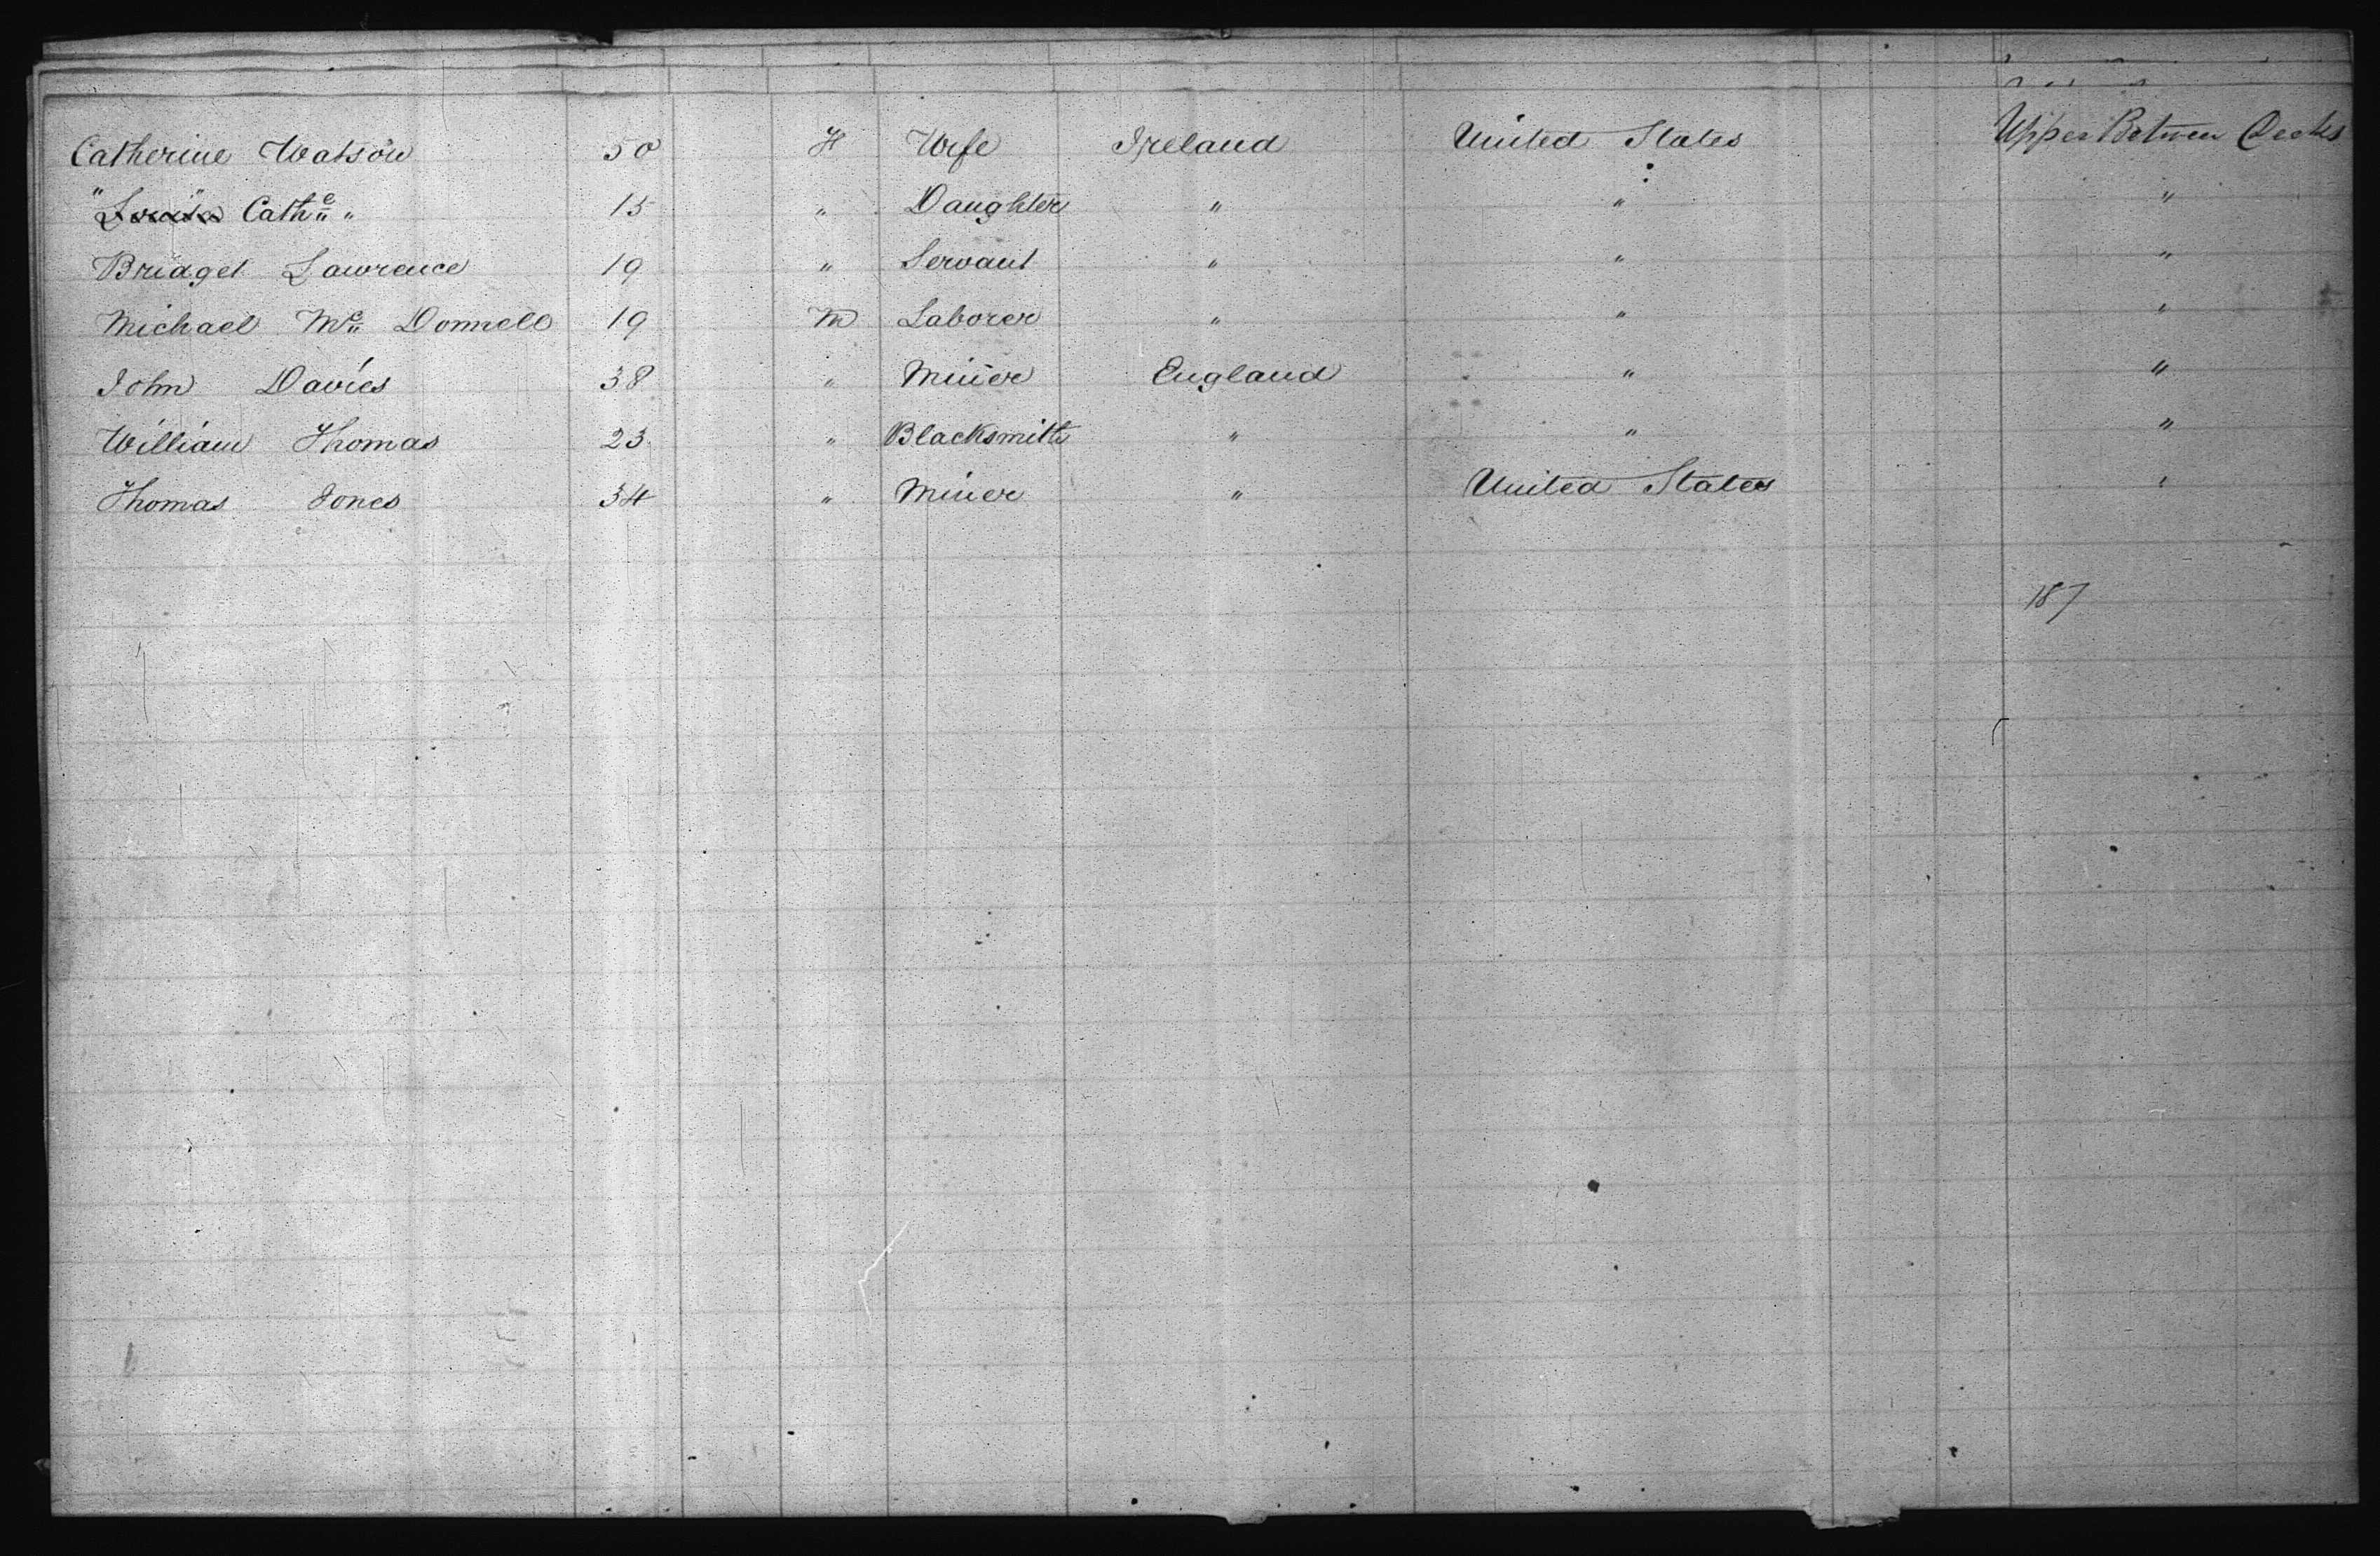 Catherine Watson 50 F Wife Ireland United States Upper Between Decks
" Louisa Cathe " 15 " Daughter " " "
Bridget Lawrence 19 " Servant " " "
Michael Mc Donnell 19 M Laborer " " "
John Davies 38 " Miner England " "
William Thomas 23 " Blacksmith " " "
Thomas Jones 34 " Miner " United States "
187